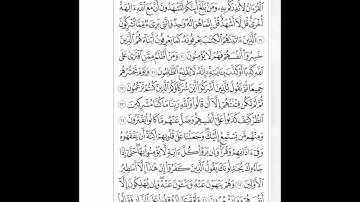 ٱلْقُرْءَانُ لِأُنذِرَكُم بِهِۦ وَمَنۢ بَلَغَ أَئِنَّكُمْ لَتَشْهَدُونَ أَنَّ مَعَ ٱللَّهِ ءَالِهَةً
أُخْرَىٰ قُل لَّآ أَشْهَدُ قُلْ إِنَّمَا هُوَ إِلَٰهٌ وَٰحِدٌ وَإِنَّنِى بَرِىٓءٌ مِّمَّا تُشْرِكُونَ
١٩ ٱلَّذِينَ ءَاتَيْنَٰهُمُ ٱلْكِتَٰبَ يَعْرِفُونَهُۥ كَمَا يَعْرِفُونَ أَبْنَآءَهُمُ ٱلَّذِينَ
خَسِرُوٓا۟ أَنفُسَهُمْ فَهُمْ لَا يُؤْمِنُونَ ٢٠ وَمَنْ أَظْلَمُ مِمَّنِ ٱفْتَرَىٰ عَلَى
ٱللَّهِ كَذِبًا أَوْ كَذَّبَ بِـَٔايَٰتِهِۦٓ إِنَّهُۥ لَا يُفْلِحُ ٱلظَّٰلِمُونَ ٢١ وَيَوْمَ نَحْشُرُهُمْ
جَمِيعًا ثُمَّ نَقُولُ لِلَّذِينَ أَشْرَكُوٓا۟ أَيْنَ شُرَكَآؤُكُمُ ٱلَّذِينَ كُنتُمْ تَزْعُمُونَ ٢٢
ثُمَّ لَمْ تَكُن فِتْنَتُهُمْ إِلَّآ أَن قَالُوا۟ وَٱللَّهِ رَبِّنَا مَا كُنَّا مُشْرِكِينَ ٢٣
ٱنظُرْ كَيْفَ كَذَبُوا۟ عَلَىٰٓ أَنفُسِهِمْ وَضَلَّ عَنْهُم مَّا كَانُوا۟ يَفْتَرُونَ ٢٤
وَمِنْهُم مَّن يَسْتَمِعُ إِلَيْكَ وَجَعَلْنَا عَلَىٰ قُلُوبِهِمْ أَكِنَّةً أَن يَفْقَهُوهُ
وَفِىٓ ءَاذَانِهِمْ وَقْرًا وَإِن يَرَوْا۟ كُلَّ ءَايَةٍ لَّا يُؤْمِنُوا۟ بِهَا حَتَّىٰٓ إِذَا
جَآءُوكَ يُجَٰدِلُونَكَ يَقُولُ ٱلَّذِينَ كَفَرُوٓا۟ إِنْ هَٰذَآ إِلَّآ أَسَٰطِيرُ
ٱلْأَوَّلِينَ ٢٥ وَهُمْ يَنْهَوْنَ عَنْهُ وَيَنْـَٔوْنَ عَنْهُ وَإِن يُهْلِكُونَ إِلَّآ